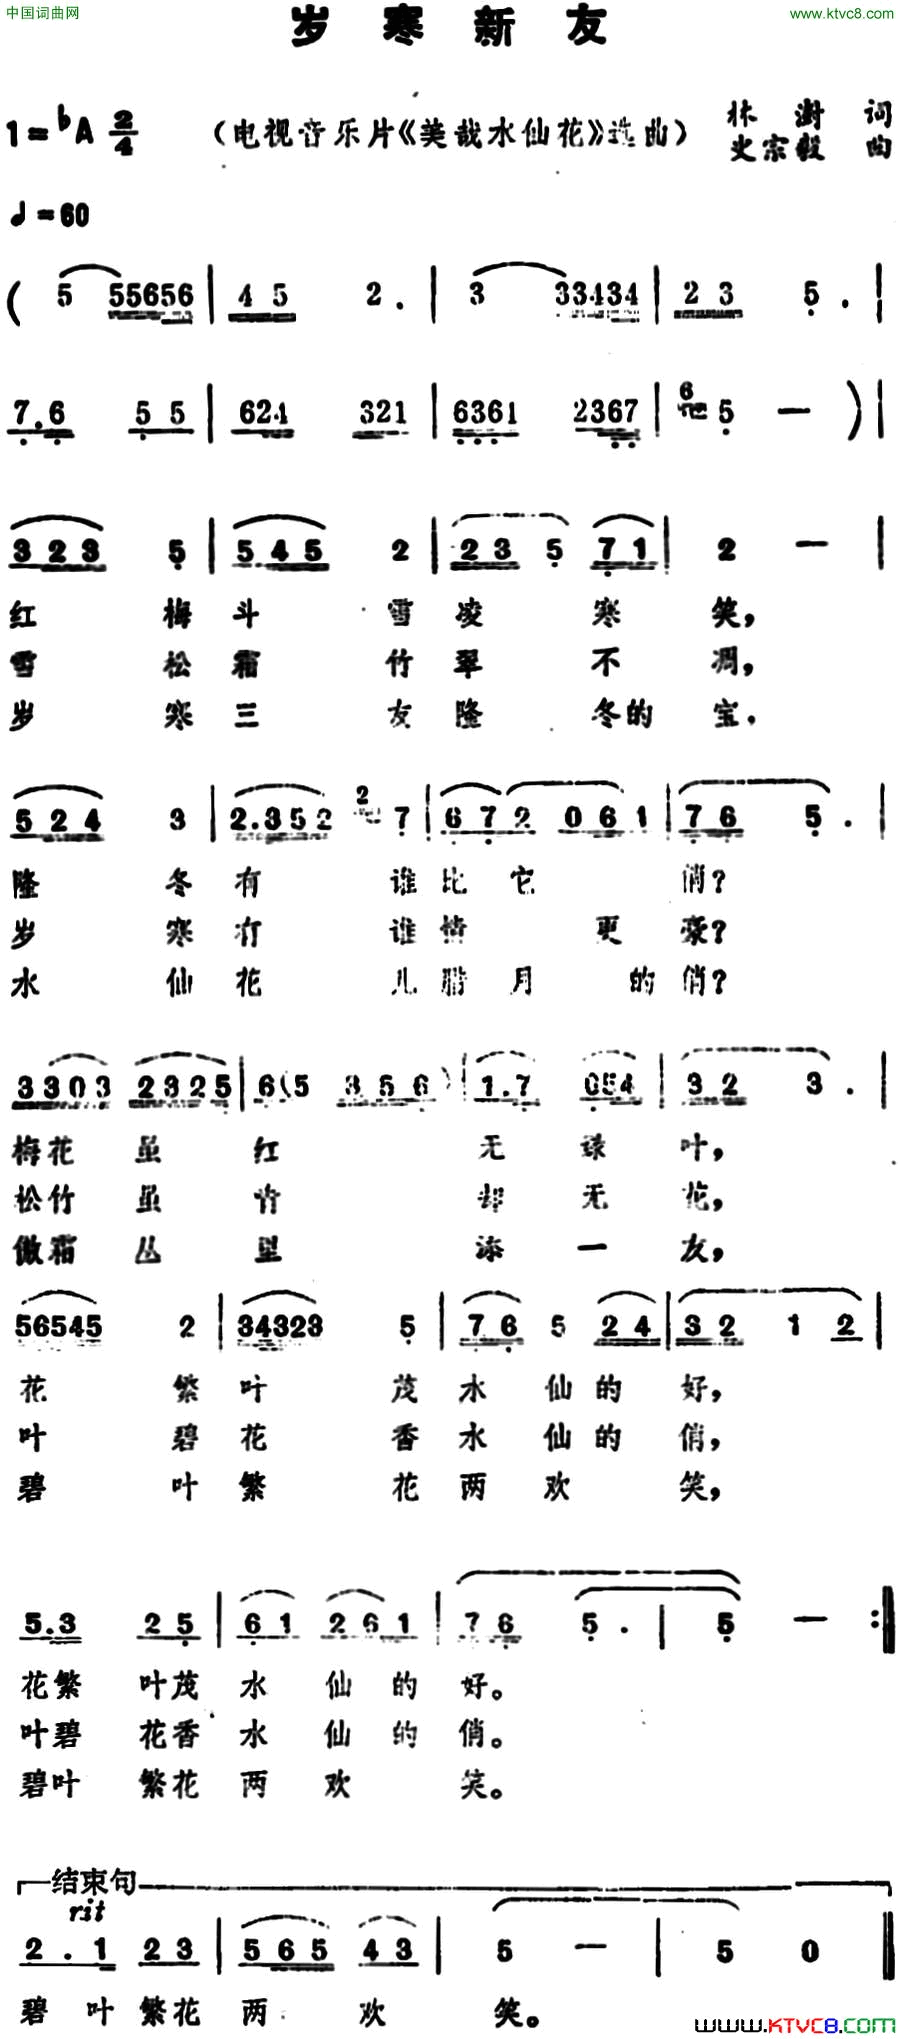 中国词曲网
www.ktvc8.com
岁寒新友
1=♭A 2/4
(电视音乐片《美哉水仙花》选曲)
林澍 词
史宗毅 曲
♩=60
( 5 55656 | 45 2. | 3 33434 | 23 5. |
7.6 55 | 624 321 | 6361 2367 | 6 5 — ) |
323 5 | 545 2 | 235 71 | 2 — |
红梅斗雪凌寒笑,
雪松霜竹翠不凋,
岁寒三友隆冬的宝.
524 3 | 2.352 2 7 | 672 061 | 76 5. |
隆冬有谁比它俏?
岁寒有谁情更豪?
水仙花儿腊月的俏?
3303 2325 | 6(5 356) | 1.7 054 | 32 3. |
梅花虽红无绿叶,
松竹虽青却无花,
傲霜丛里添一友,
56545 2 | 34323 5 | 76 5 24 | 32 12 |
花繁叶茂水仙的好,
叶碧花香水仙的俏,
碧叶繁花两欢笑,
5.3 25 | 61 261 | 76 5. | 5 — :|
花繁叶茂水仙的好。
叶碧花香水仙的俏。
碧叶繁花两欢笑。
结束句
rit
2.1 23 | 565 43 | 5 — | 5 0 ||
碧叶繁花两欢笑。
www.KTVC8.com